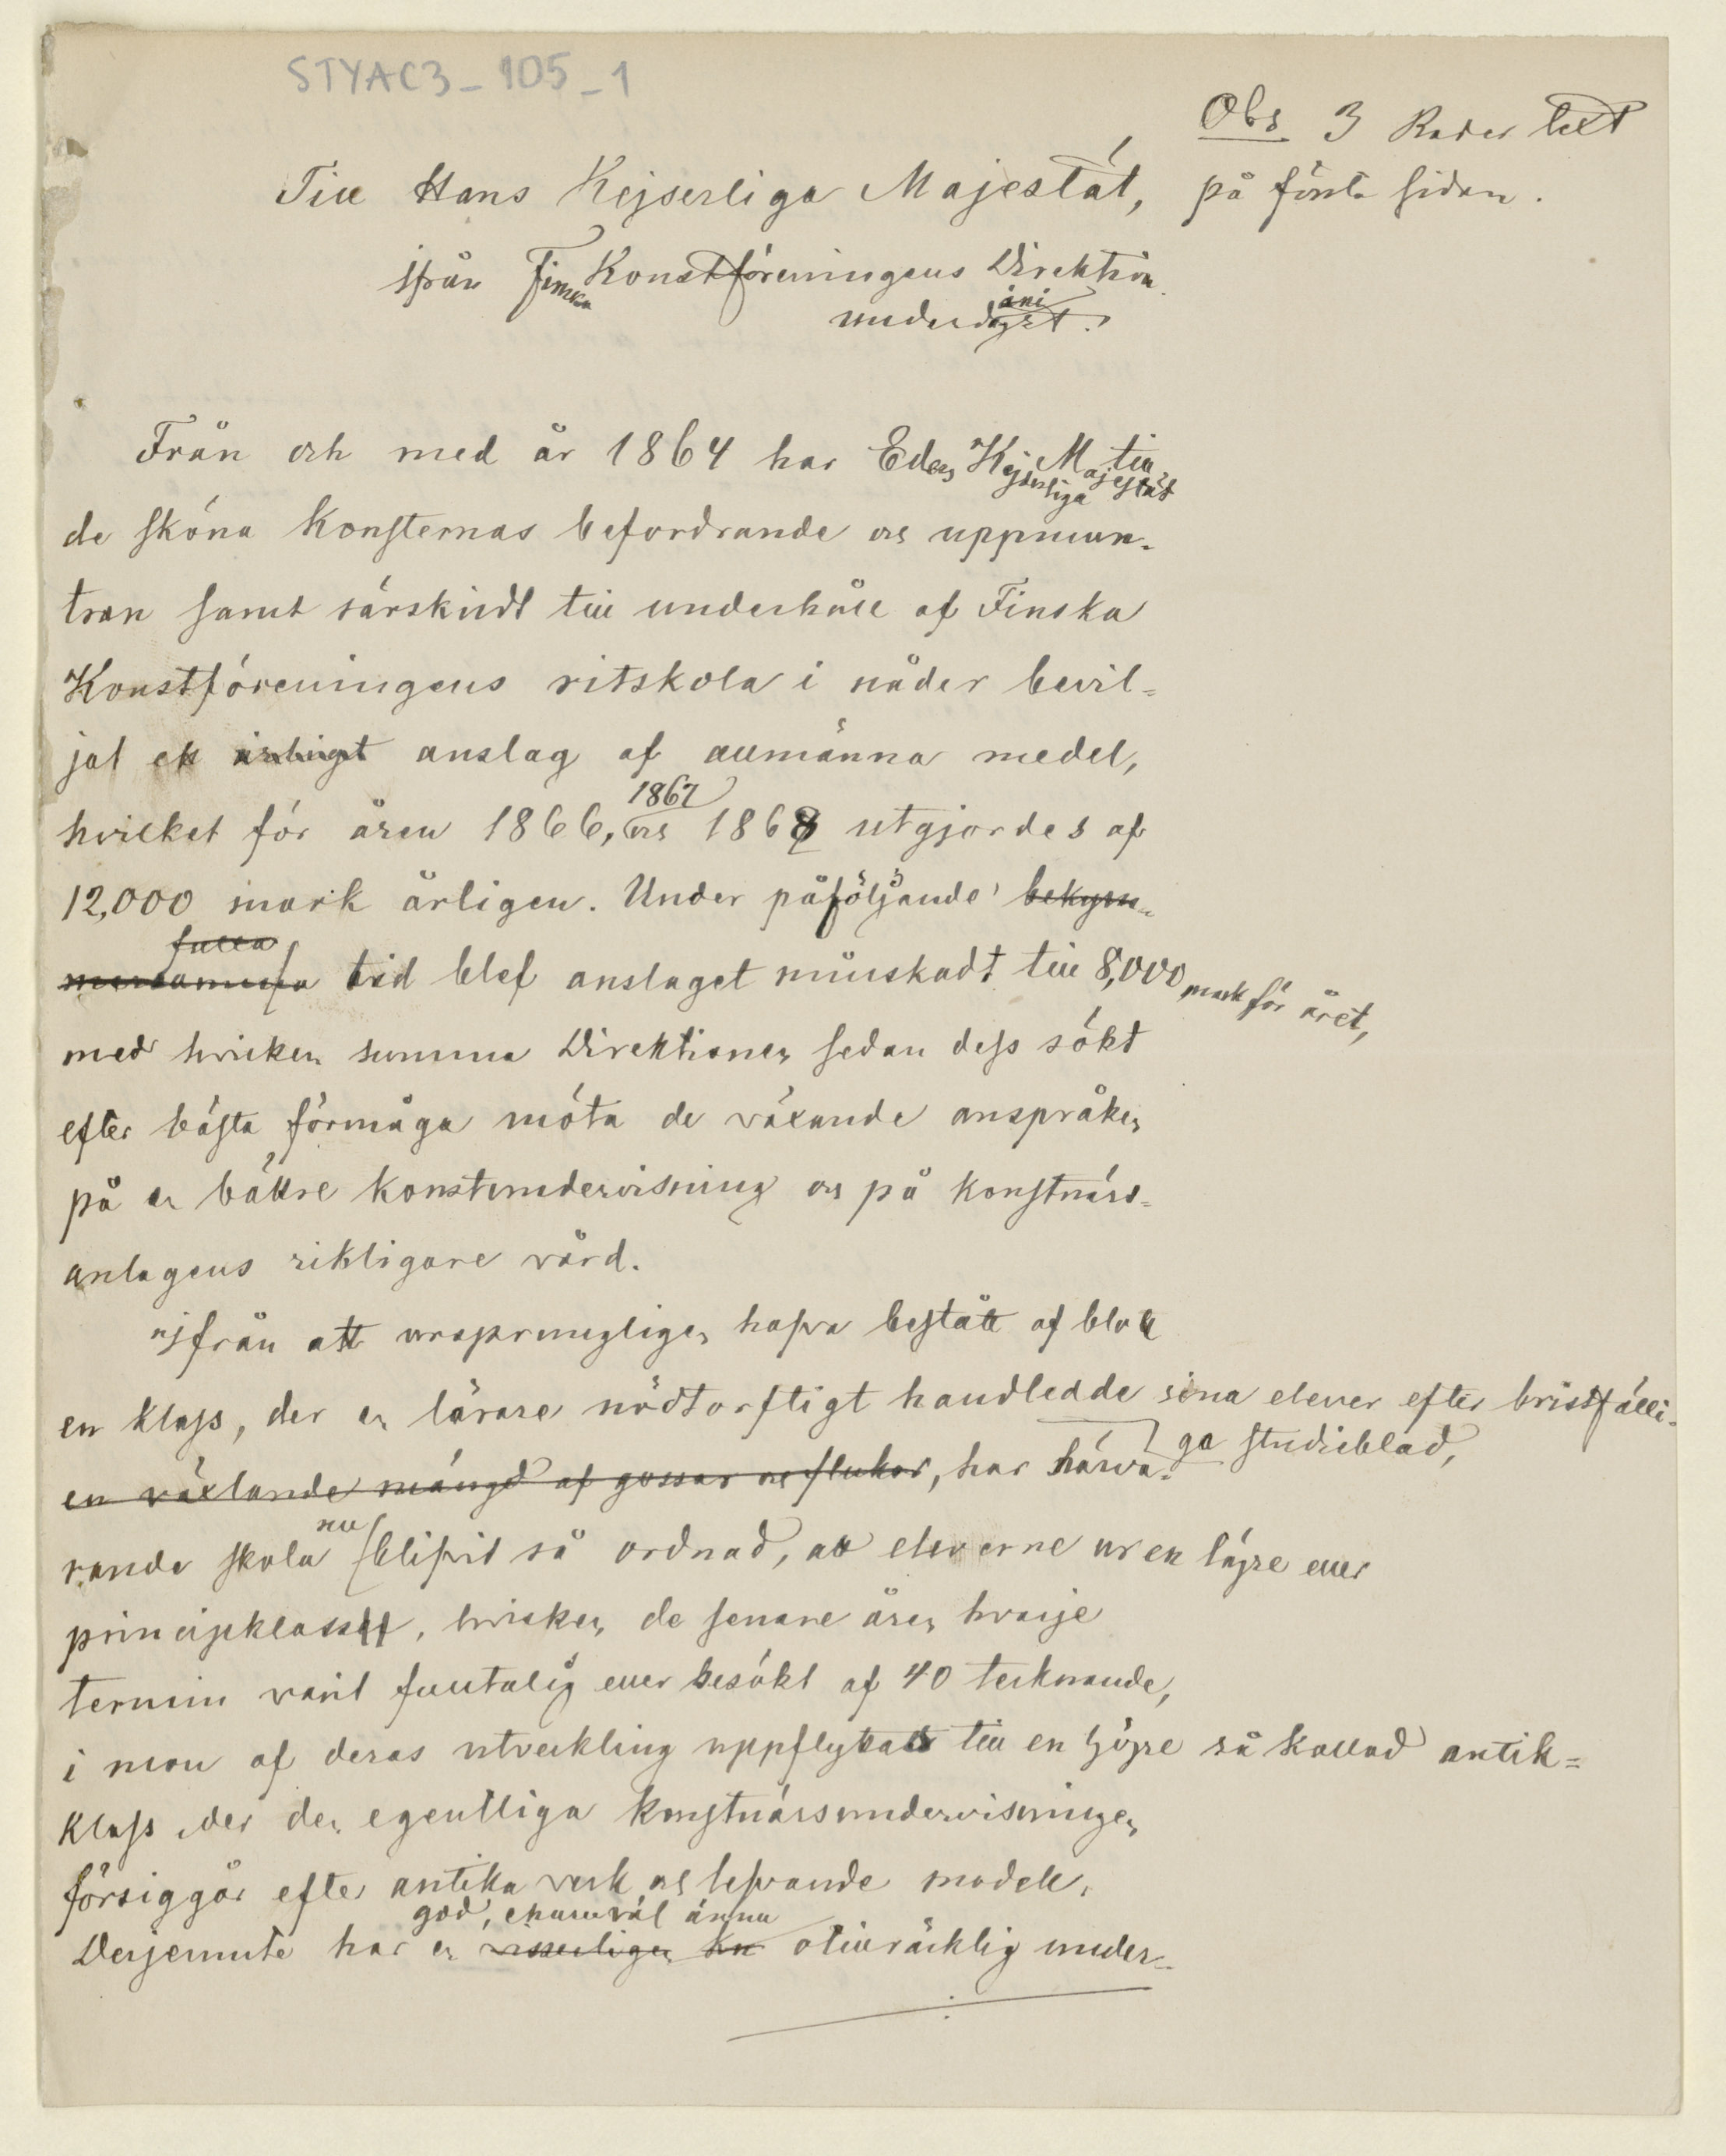 STYAC3_105_1
Obs 3 Rader text
på första sidan.
Till Hans Kejserliga Majestät,
från Finska Konstföreningens Direktion
underdånigst.
Från och med år 1864 har Eders Kejserliga Majestät till
de sköna konsternas befordrande och uppmun-
tran samt särskildt till underhåll af Finska
Konstföreningens ritskola i nåder bevil-
jat ett årligt anslag af allmänna medel,
hvilket för åren 1866, 1867 och 1868 utgjordes af
12,000 mark årligen. Under påföljande bekym-
fulla
tid blef anslaget minskadt till 8,000 mark för året,
med hvilken summa Direktionen sedan dess sökt
efter bästa förmåga möta de växande anspråken
på en bättre konstundervisning och på konstnärs-
anlagens riktigare vård.
Ifrån att ursprungligen hafva bestått af blott
en klass, der en lärare nödtorftigt handledde sina elever efter bristfälli-
ga studieblad,
en växlande mängd af gossar och flickor, har härva-
rande skola nu blifvit så ordnad, att eleverne ur en lägre eller
principklass, hvilken de senare åren hvarje
termin varit fulltalig eller besökt af 40 tecknande,
i mon af deras utveckling uppflyttats till en högre så kallad antik-
klass der den egentliga konstnärsundervisningen
försiggår efter antika verk och lefvande modell.
god, ehuruväl ännu
Derjemnte har en visserligen otillräcklig under-